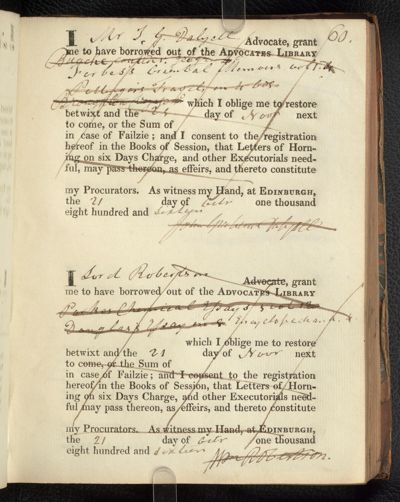 60.
I Mr J. G. Dalyell Advocate, grant
me to have borrowed out of the ADVOCATES LIBRARY
Forbes's Oriental Memoirs
which I oblige me to restore
betwixt and the 21 day of Novr next
to come, or the Sum of
in case of Failzie; and I consent to the registration
hereof in the Books of Session, that Letters of Horn-
ing on six Days Charge, and other Executorials need-
ful, may pass thereon, as effeirs, and thereto constitute
my Procurators. As witness my Hand, at EDINBURGH,
the 21 day of Octr one thousand
eight hundred and sixteen
John Graham Dalyell
I Lord Robertson Advocate, grant
me to have borrowed out of the ADVOCATES LIBRARY
Parkes Chemical Essays
Douglas Essay on Encyclopedia
which I oblige me to restore
betwixt and the 21 day of Novr next
to come, or the Sum of
in case of Failzie; and I consent to the registration
hereof in the Books of Session, that Letters of Horn-
ing on six Days Charge, and other Executorials need-
ful may pass thereon, as effeirs, and thereto constitute
my Procurators. As witness my Hand, at EDINBURGH,
the 21 day of Octr one thousand
eight hundred and sixteen
Wm Robertson.